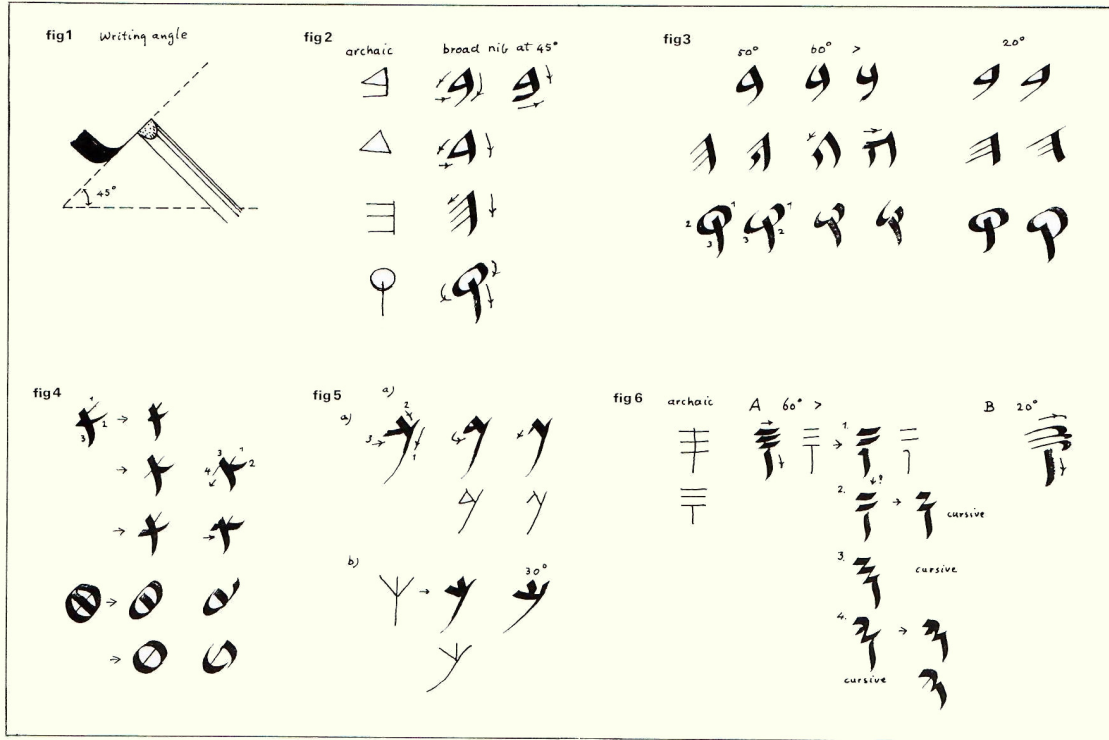 fig1 Writing angle
45°
fig2
archaic broad nib at 45°
fig3
50° 60° > 20°
2 1 3
3 1 2
fig4
1 2 3
3 1 4 2
fig5
a)
a)
2
3
1
b)
30°
fig6 archaic A 60° > B 20°
1.
?
2.
cursive
3.
cursive
4.
cursive